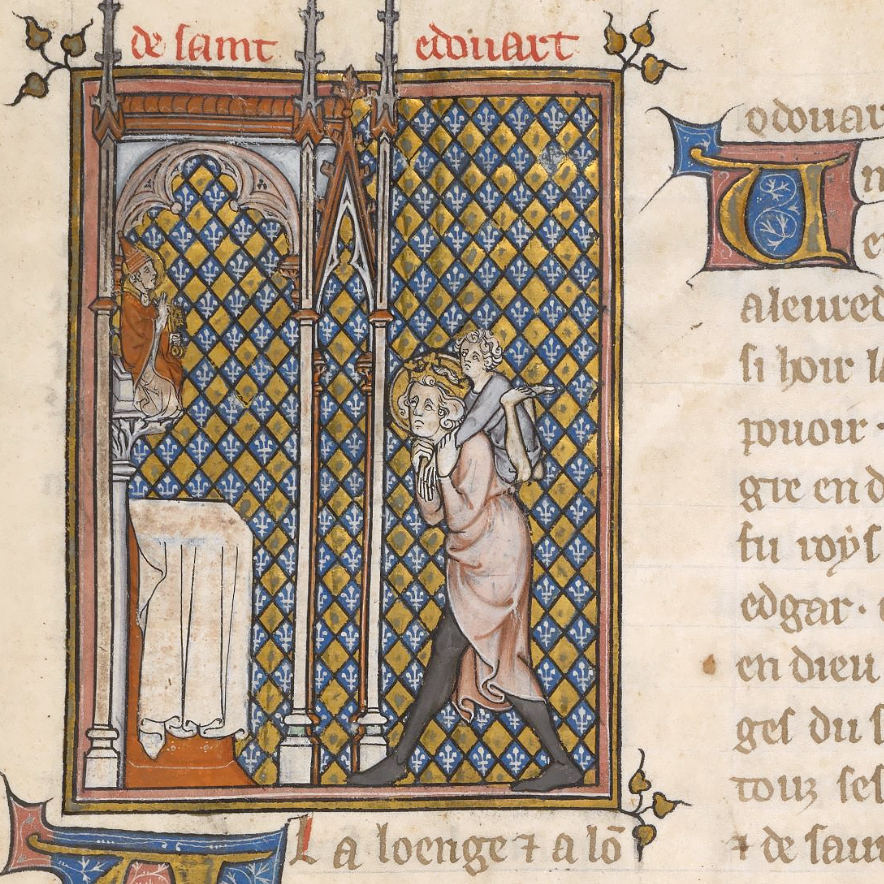 de saint edouart
odouar
U n
e
aleured
si hoir la
pouoir
gre en d
fu roys
edgar.
en dieu
ges du s
touz ses
⁊ de sau
L a loenge ⁊ a lō